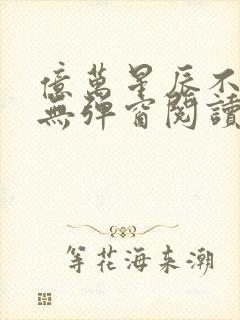 億萬星辰不
無彈窗閱讀
等花海来潮